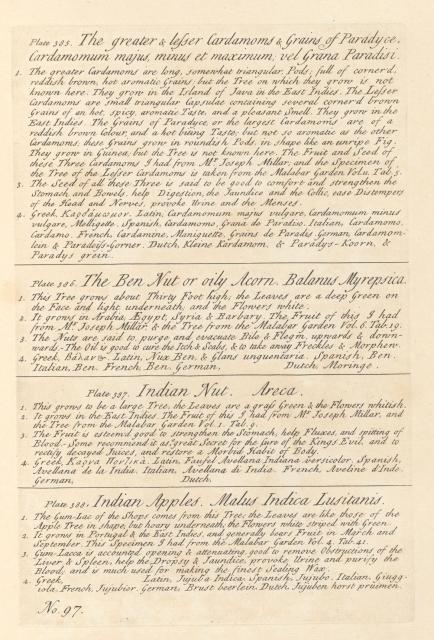 Plate 385. The greater & lesser Cardamoms & Grains of Paradyce.
Cardamomum majus, minus et maximum, vel Grana Paradisi.
1. The greater Cardamoms are long, somewhat triangular, Pods; full of corner'd,
reddish brown, hot aromatic Grains; but the Tree on which they grow is not
known here. They grow in the Island of Java in the East Indies. The Lesser
Cardamoms are small triangular Capsulae containing several corner'd brown
Grains of an hot, spicy, aromatic Taste, and a pleasant Smell. They grow in the
East Indies. The Grains of Paradyce, or the largest Cardamoms are of a
reddish brown Colour, and a hot biting Taste; but not so aromatic as the other
Cardamoms; these Grains grow in roundish Pods, in shape like an unripe Fig.
They grow in Guinea, but the Tree is not known here. The Fruit and Seed of
these Three Cardamoms I had from Mr. Joseph Millar; and the Specimen of
the Tree of the Lesser Cardamoms is taken from the Malabar Garden Vol.
3. The Seed of all these Three is said to be good to comfort and strengthen the
Stomach and Bowels, help Digestion, the Jaundice and the Collic, ease Distempers
of the Head and Nerves, provoke Urine and the Menses.
4. Greek, Latin, Cardamomum majus vulgare, Cardamomum minus
vulgare, Melligetto, Spanish, Cardamomo, Grana de Paradiso. Italian, Cardamomo,
Cardamo. French, Cardamine, Maniguette, Graine de Paradis. German, Cardamom-
lein & Paradeiss-Gorner. Dutch, Kleine Kardamom, & Paradys-Koorn, &
Paradys grein.
Plate 386. The Ben Nut or oily Acorn. Balanus Myrepsica.
1. This Tree grows about Thirty Foot high; the Leaves are a deep Green on
the Face and light underneath, and the Flowers white.
2. It grows in Arabia, Ægypt, Syria & Barbary. The Fruit of this I had
from Mr. Joseph Millar, & the Tree from the Malabar Garden Vol. 6. Tab. 19.
3. The Nuts are said to purge and evacuate Bile & Flegm, upwards & down-
wards. The Oil is good to cure the Itch & Scabs, & to take away Freckles & Morphew.
4. Greek, Latin, Nux Ben, & Glans unguentaria. Spanish, Ben.
Italian, Ben. French, Ben. German, Dutch, Moringe.
Plate 387. Indian Nut. Areca.
1. This grows to be a large Tree, the Leaves are a grass Green & the Flowers whitish.
2. It grows in the East Indies. The Fruit of this I had from Mr. Joseph Millar, and
the Tree from the Malabar Garden Vol. 1. Tab. 9.
3. The Fruit is esteemd good to strengthen the Stomach, help Fluxes, and spitting of
Blood. Some recommend it as great Secret for the Cure of the Kings Evil, and to
rectify decayed Juices, and restore a Morbid Habit of Body.
4. Greek, Latin, Faufel, Avellana Indiana versicolor. Spanish,
Avellana de la India. Italian, Avellana di India. French, Aveline d'Inde.
German, Dutch,
Plate 388. Indian Apples. Malus Indica Lusitanis.
1. The Gum-Lac of the Shops comes from this Tree; the Leaves are like those of the
Apple Tree in shape, but hoary underneath, the Flowers white stryped with Green.
2. It grows in Portugal & the East Indies, and generally bears Fruit in March and
September. This Specimen I had from the Malabar Garden Vol. 4. Tab. 41.
3. Gum-Lacca is accounted opening & attenuating, good to remove Obstructions of the
Liver & Spleen, help the Dropsy & Jaundice, provoke Urine and purify the
Blood; and is much used for making the finest Sealing Wax.
4. Greek, Latin, Jujuba Indica. Spanish, Jujubo. Italian, Giugg-
iola. French, Jujubier. German, Brust beerlein. Dutch, Jujuben horst pruimen.
No. 97.